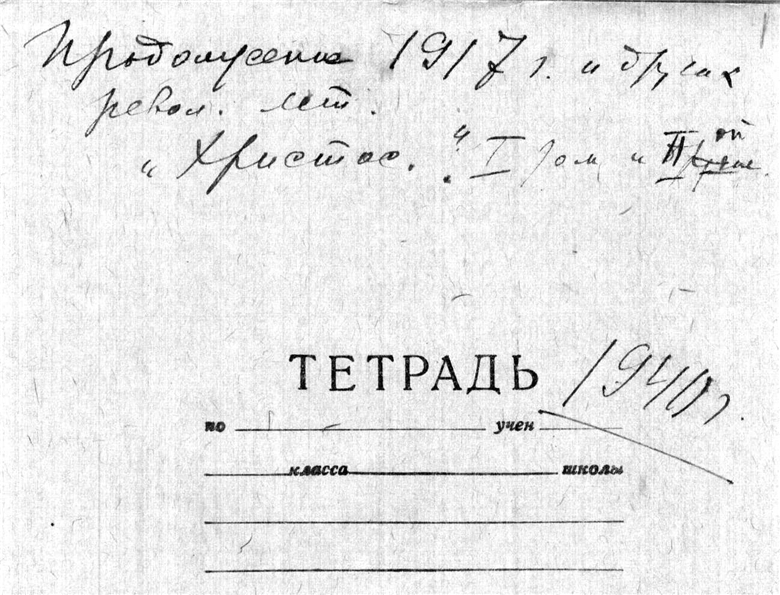 Продолжение 1917 г. и других
револ. лет.
"Христос." I том и II ой
ТЕТРАДЬ
1940 г.
по учен
класса школы